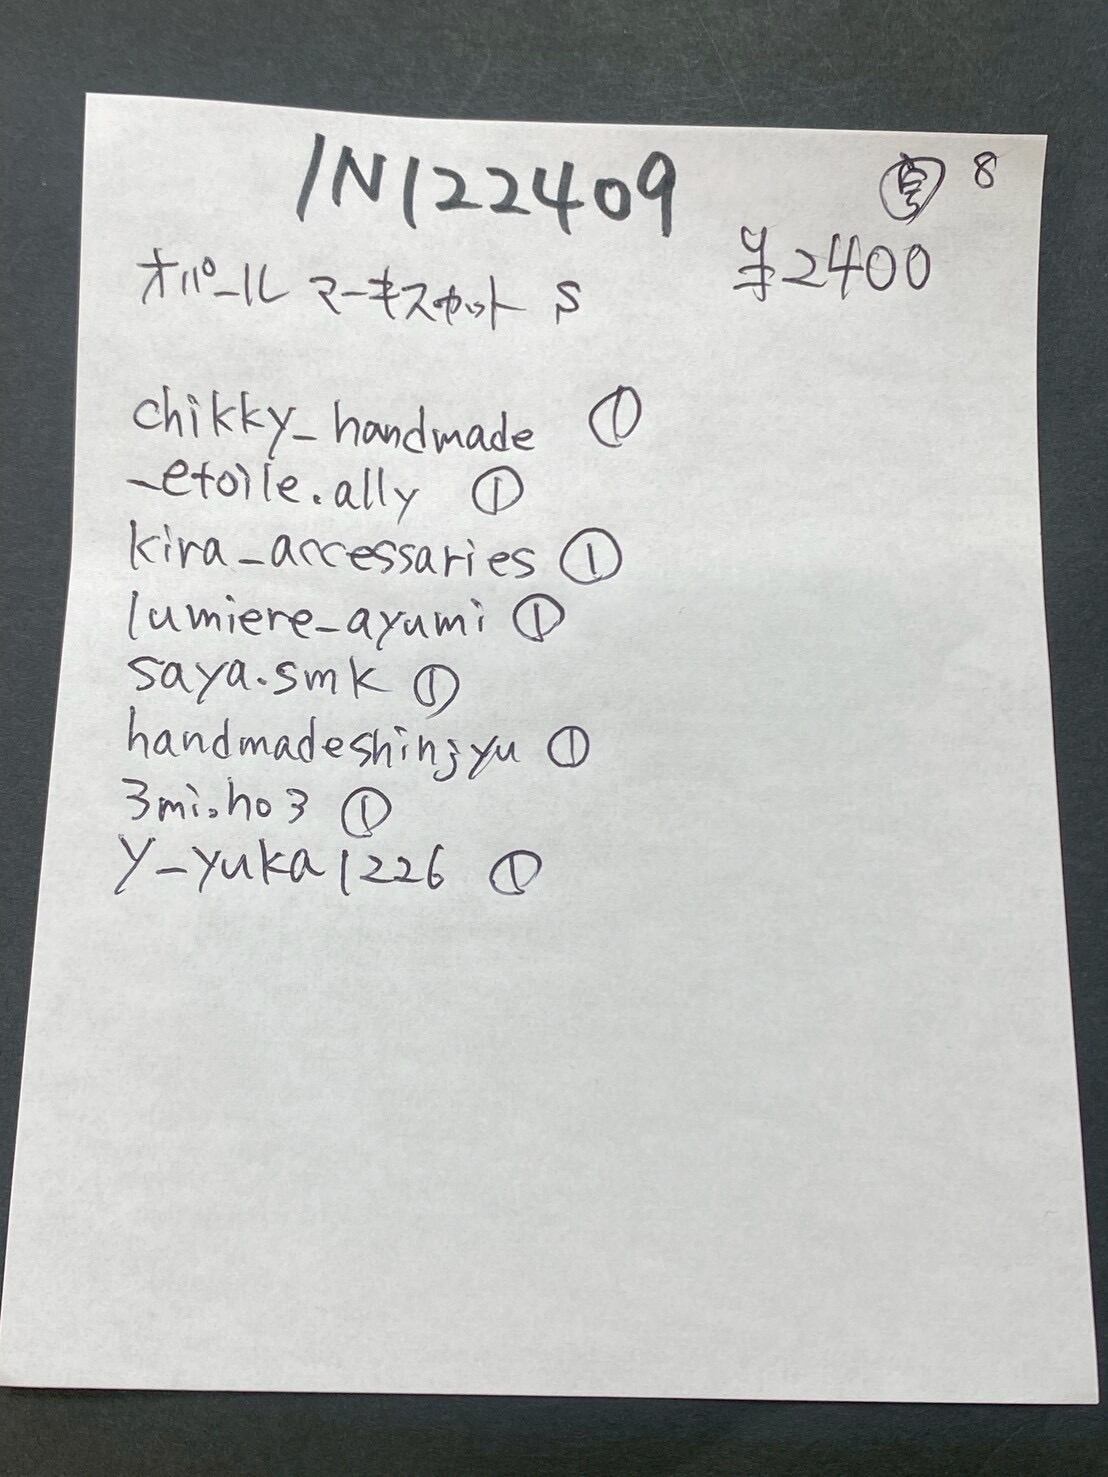 IN122409
8
¥2400
オパール マーキスカット S
chikky_handmade ①
_etoile.ally ①
kira_accessaries ①
lumiere_ayumi ①
saya.smk ①
handmadeshinjyu ①
3mi.ho3 ①
y_yuka1226 ①